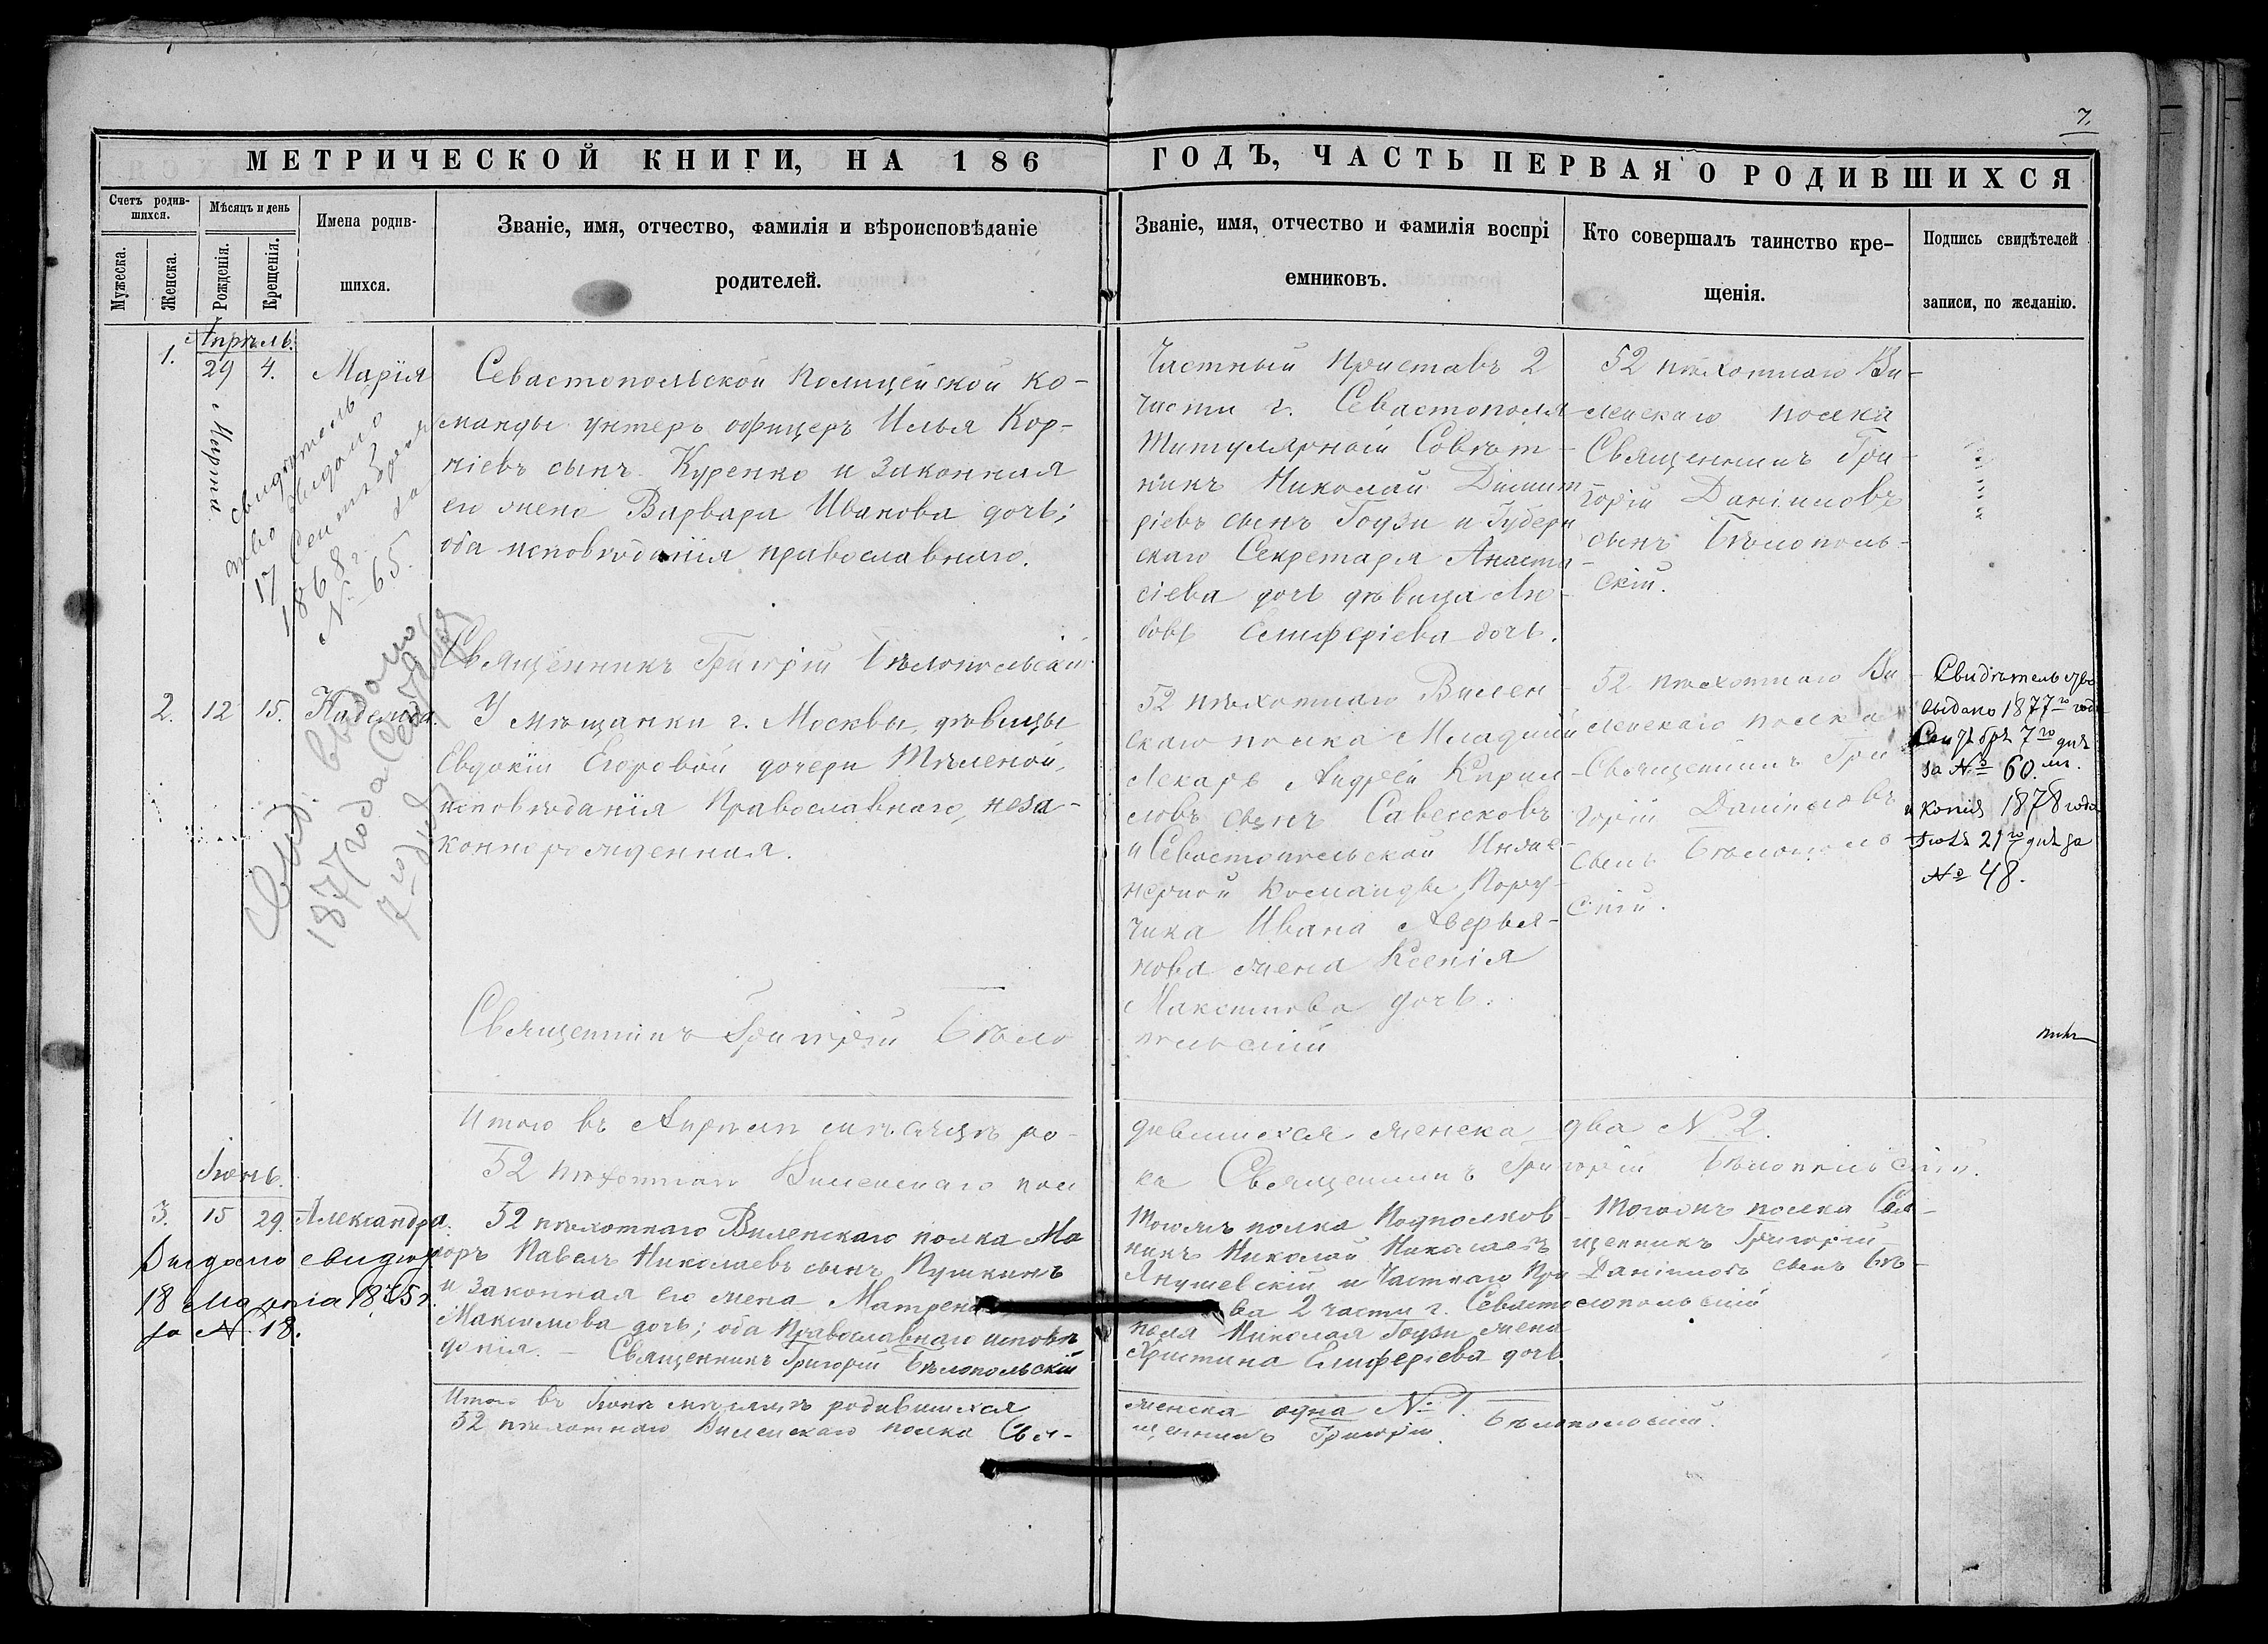 7.
МЕТРИЧЕСКОЙ КНИГИ, НА 186
ГОДЪ, ЧАСТЬ ПЕРВАЯ О РОДИВШИХСЯ
Счетъ родив-
шихся.
Мужеска.
Женска.
Мѣсяцъ и день
Рожденія.
Крещенія.
Имена родив-
шихся.
Званіе, имя, отчество, фамилія и вѣроисповѣданіе
родителей.
Званіе, имя, отчество и фамилія воспрі
емниковъ.
Кто совершалъ таинство кре-
щенія.
Подпись свидѣтелей
записи, по желанію.
Апрѣль.
1.
29
Марта
4.
Марія
свидѣтель
ство выдано
17 Сентября
1868 г. за
№ 65.
Севастопольской Полицейской Ко-
манды унтеръ офицеръ Илья Кор-
ніевъ сынъ Куренко и законная
его жена Варвара Иванова дочь;
оба исповѣданія православнаго.
Священникъ Григорій Бѣлопольскій
Частный Приставъ 2
части г. Севастополя
Титулярный Совѣт-
никъ Николай Димит
ріевъ сынъ Гоузи и Губерн
скаго Секретаря Анаста-
сіева дочь дѣвица Лю-
бовь Елиферіева дочь.
52 пѣхотнаго Ви-
ленскаго полка
Священникъ Гри-
горій Даніиловъ
сынъ Бѣлополь-
скій.
2.
12
15.
Надежда.
Свид. выдано
1877 года Сентября
7 го дня
У мѣщанки г. Москвы, дѣвицы
Евдокіи Егоровой дочери Тѣленой,
исповѣданія Православнаго, неза-
коннорожденная.
Священникъ Григорій Бѣло
польскій
52 пѣхотнаго Вилен-
скаго полка Младшій
Лекарь Андрей Кирил-
ловъ сынъ Савенсковъ
и Севастопольской Инже-
нерной Команды Пору-
чика Ивана Аверья-
нова жена Ксенія
Максимова дочь.
52 пѣхотнаго Ви-
ленскаго полка
Священникъ Гри
горій Даніиловъ
сынъ Бѣлополь
скій.
Свидѣтельство
выдано 1877 го года
Сентябр. 7 го дня
за № 60. м.
и копія 1878 года
Іюля 21 го дня за
№ 48.
Итого въ Апрѣлѣ мѣсяцѣ ро-
дившихся женска два № 2.
52 пѣхотнаго Виленскаго пол
ка Священникъ Григорій Бѣлопольскій.
Іюнь.
3.
15
29.
Александра.
Выдано свидѣт
18 Марта 1885 г.
за № 18.
52 пѣхотнаго Виленскаго полка Ма
іоръ Павелъ Николаевъ сынъ Пушкинъ
и законная его жена Матрена
Максимова дочь; оба Православнаго исповѣ
данія. – Священникъ Григорій Бѣлопольскій
Тогожъ полка Подполков-
никъ Николай Николаевъ
Янушевскій и Частнаго При
ва 2 части г. Севасто
поля Николая Гоузи жена
Христина Елиферіева дочь.
Тогожъ полка Свя-
щенникъ Григорій
Даніиловъ сынъ Бѣ-
лопольскій
Итого въ Іюнѣ мѣсяцѣ родившихся
женска одна № 1.
52 пѣхотнаго Виленскаго полка Свя-
щенникъ Григорій Бѣлопольскій.